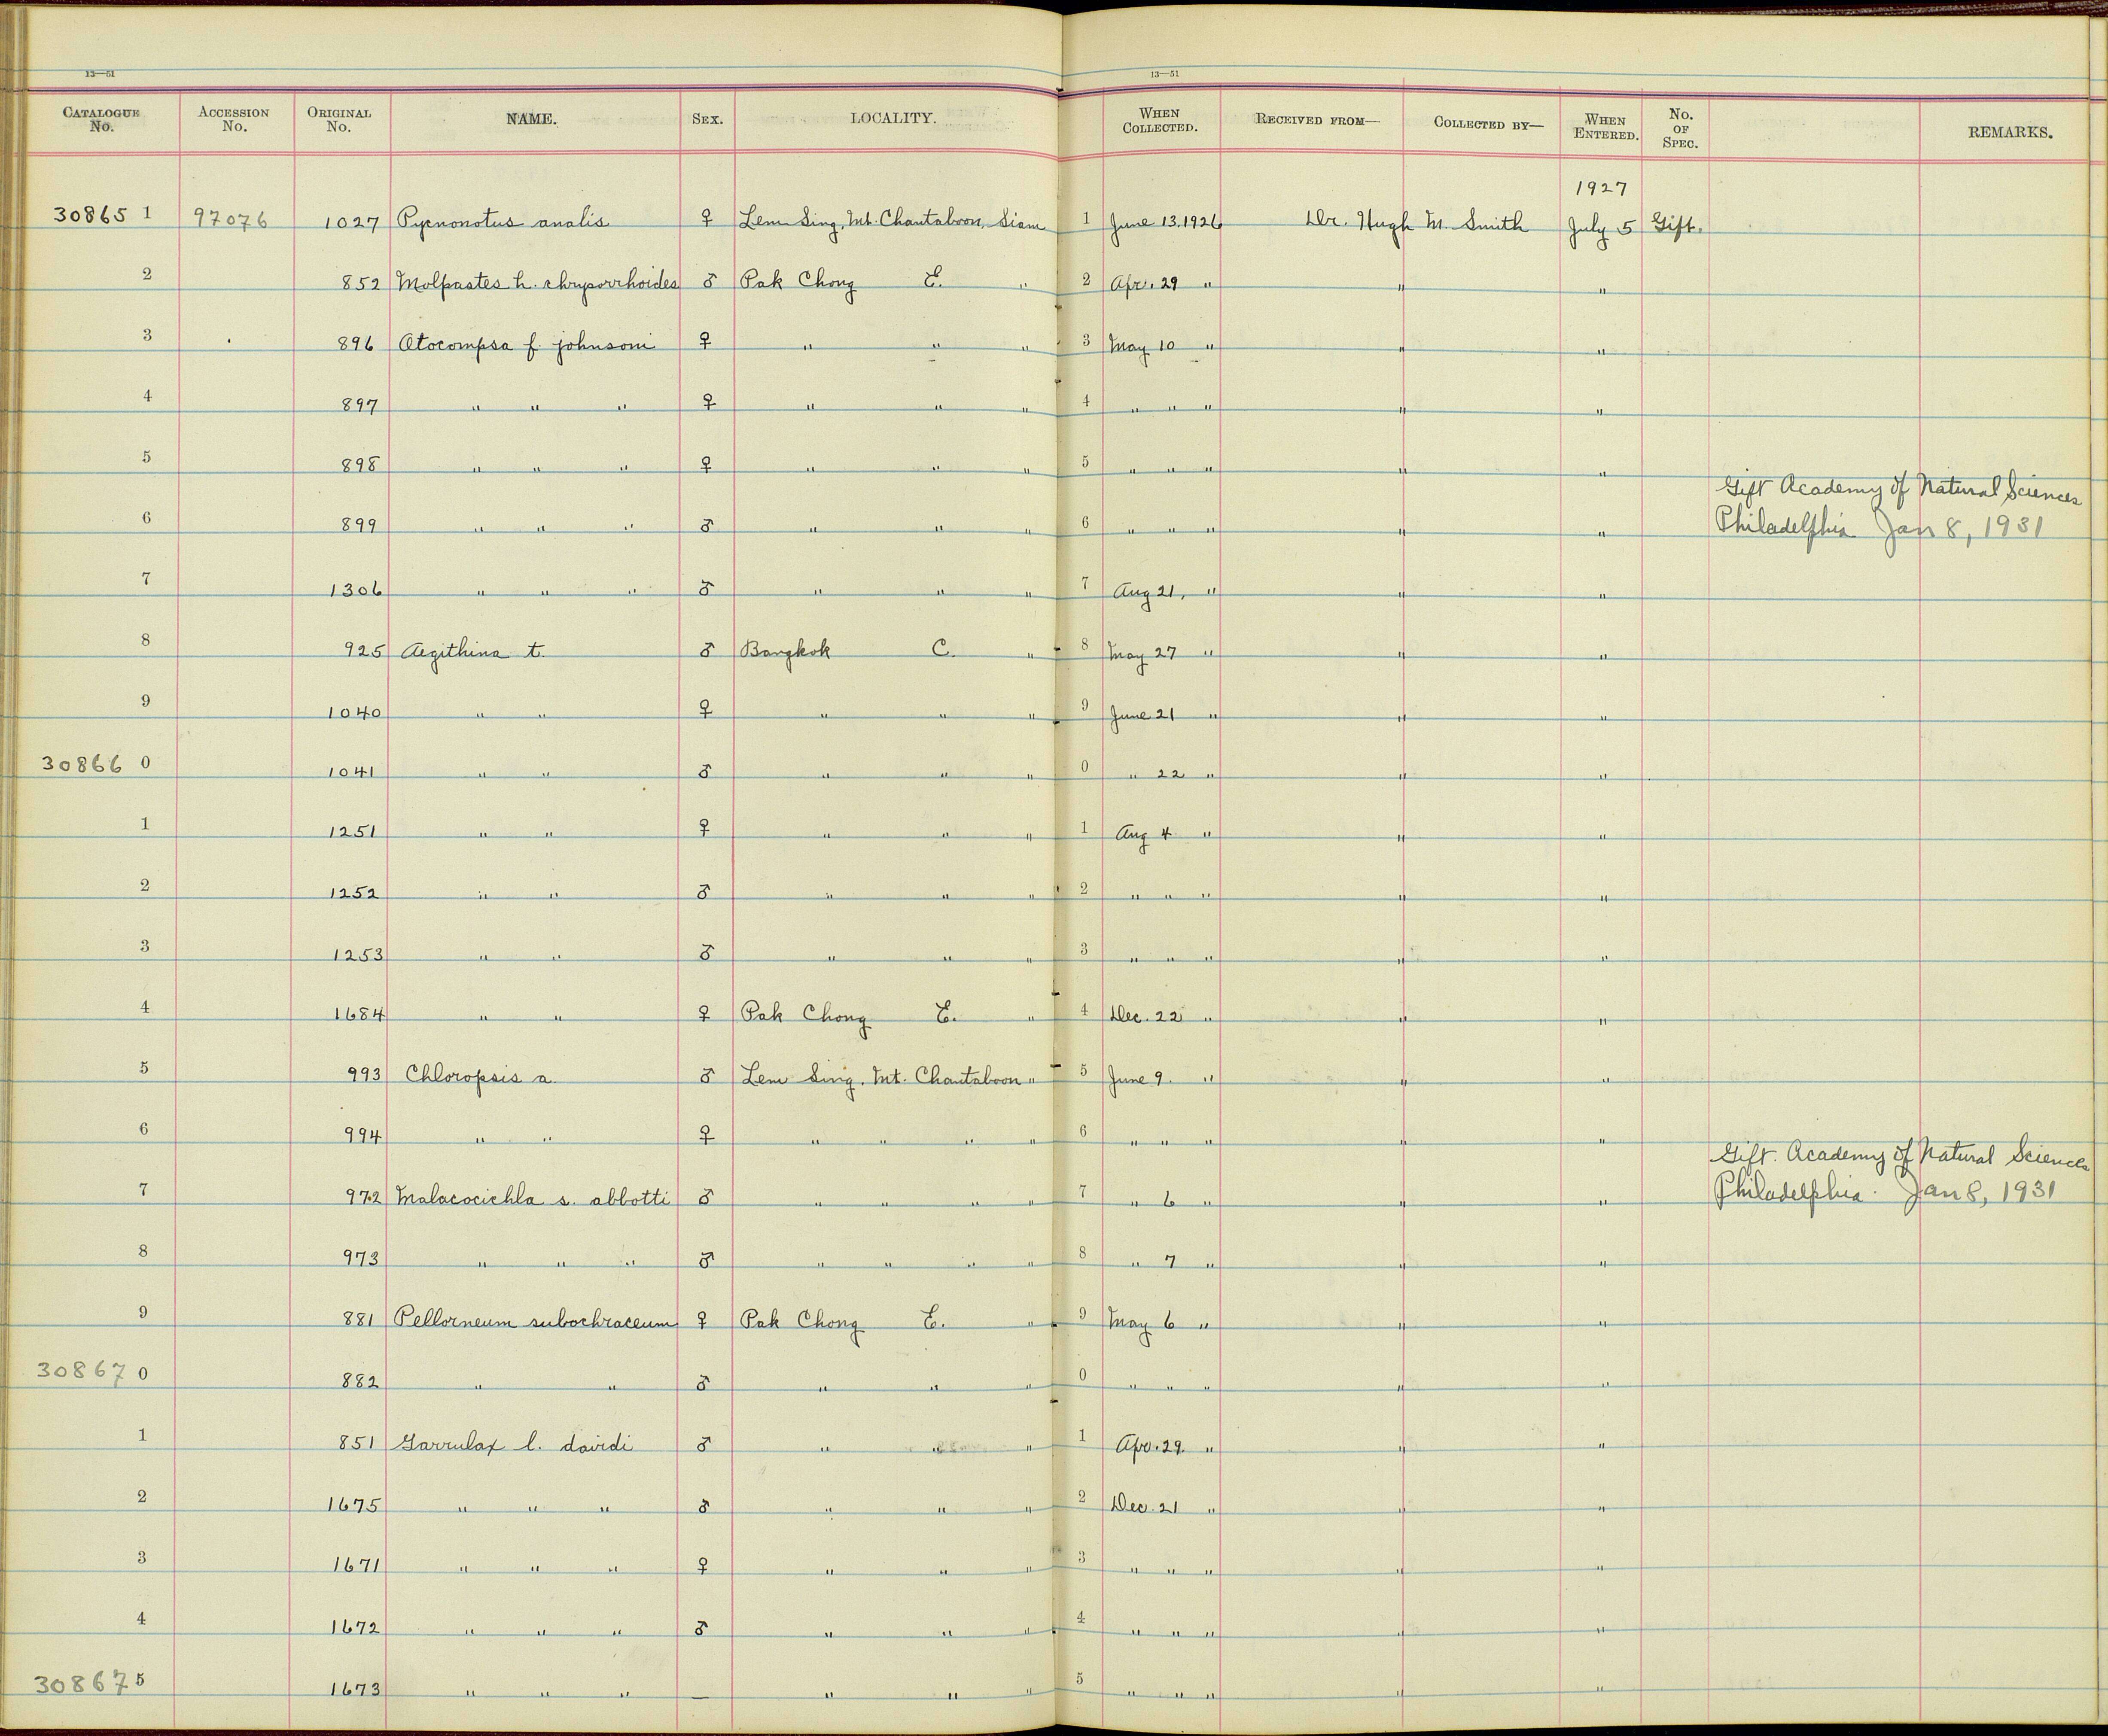 13—51 13—51
CATALOGUE No. ACCESSION No. ORIGINAL No. NAME. SEX. LOCALITY. WHEN COLLECTED. RECEIVED FROM— COLLECTED BY— WHEN ENTERED. No. OF SPEC. REMARKS.
1927
30865 1 97076 1027 Pycnonotus analis ♀ Lem Sing, Mt. Chantaboon, Siam 1 June 13.1926 Dr. Hugh M. Smith July 5 Gift.
2 852 Molpastes h. chrysorrhoides ♂ Pak Chong E. " 2 Apr. 29 " " "
3 896 Otocompsa f. johnsoni ♀ " " " 3 May 10 " " "
4 897 " " " ♀ " " " 4 " " " " "
5 898 " " " ♀ " " " 5 " " " " "
Gift Academy of Natural Sciences
6 899 " " " ♂ " " " 6 " " " " " Philadelphia Jan 8, 1931
7 1306 " " " ♂ " " " 7 Aug 21, " " "
8 925 Aegithina t. ♂ Bangkok C. " 8 May 27 " " "
9 1040 " " ♀ " " " 9 June 21 " " "
30866 0 1041 " " ♂ " " " 0 " 22 " " "
1 1251 " " ♀ " " " 1 Aug 4 " " "
2 1252 " " ♂ " " " 2 " " " " "
3 1253 " " ♂ " " " 3 " " " " "
4 1684 " " ♀ Pak Chong E. " 4 Dec. 22 " " "
5 993 Chloropsis a. ♂ Lem Sing, Mt. Chantaboon " 5 June 9. " " "
6 994 " " ♀ " " " " 6 " " " " "
Gift. Academy of Natural Sciences
7 972 Malacocichla s. abbotti ♂ " " " " 7 " 6 " " " Philadelphia. Jan 8, 1931
8 973 " " " ♂ " " " " 8 " 7 " " "
9 881 Pellorneum subochraceum ♀ Pak Chong E. " 9 May 6 " " "
30867 0 882 " " ♂ " " " 0 " " " " "
1 851 Garrulax l. davidi ♂ " " " 1 Apr. 29. " " "
2 1675 " " " ♂ " " " 2 Dec. 21 " " "
3 1671 " " " ♀ " " " 3 " " " " "
4 1672 " " " ♂ " " " 4 " " " " "
30867 5 1673 " " " — " " " 5 " " " " "